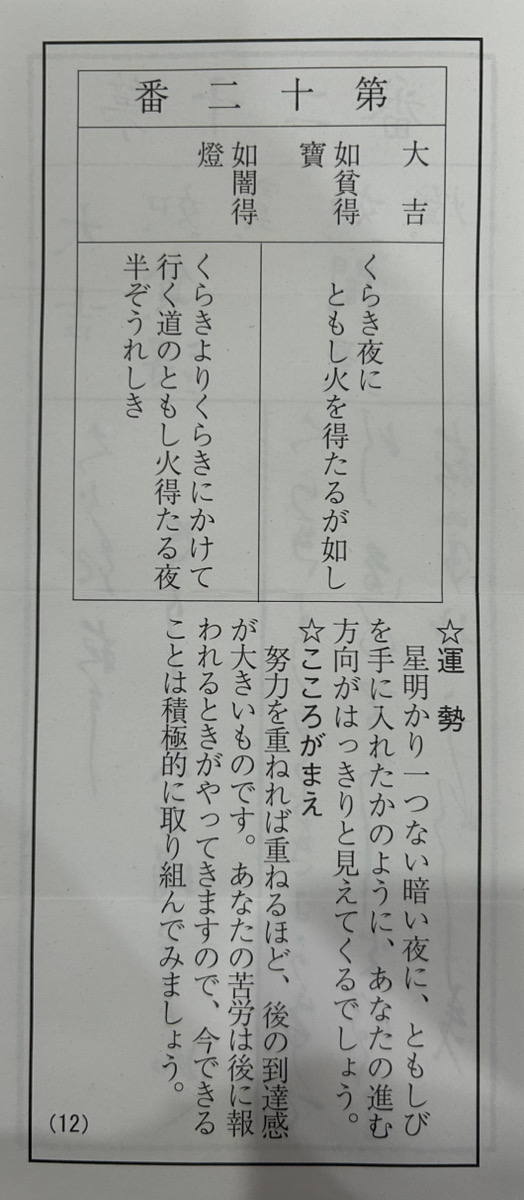 第十二番
大吉
如貧得
寶
如闇得
燈
くらき夜に
ともし火を得たるが如し
くらきよりくらきにかけて
行く道のともし火得たる夜
半ぞうれしき
☆運勢
星明かり一つない暗い夜に、ともしび
を手に入れたかのように、あなたの進む
方向がはっきりと見えてくるでしょう。
☆こころがまえ
努力を重ねれば重ねるほど、後の到達感
が大きいものです。あなたの苦労は後に報
われるときがやってきますので、今できる
ことは積極的に取り組んでみましょう。
(12)